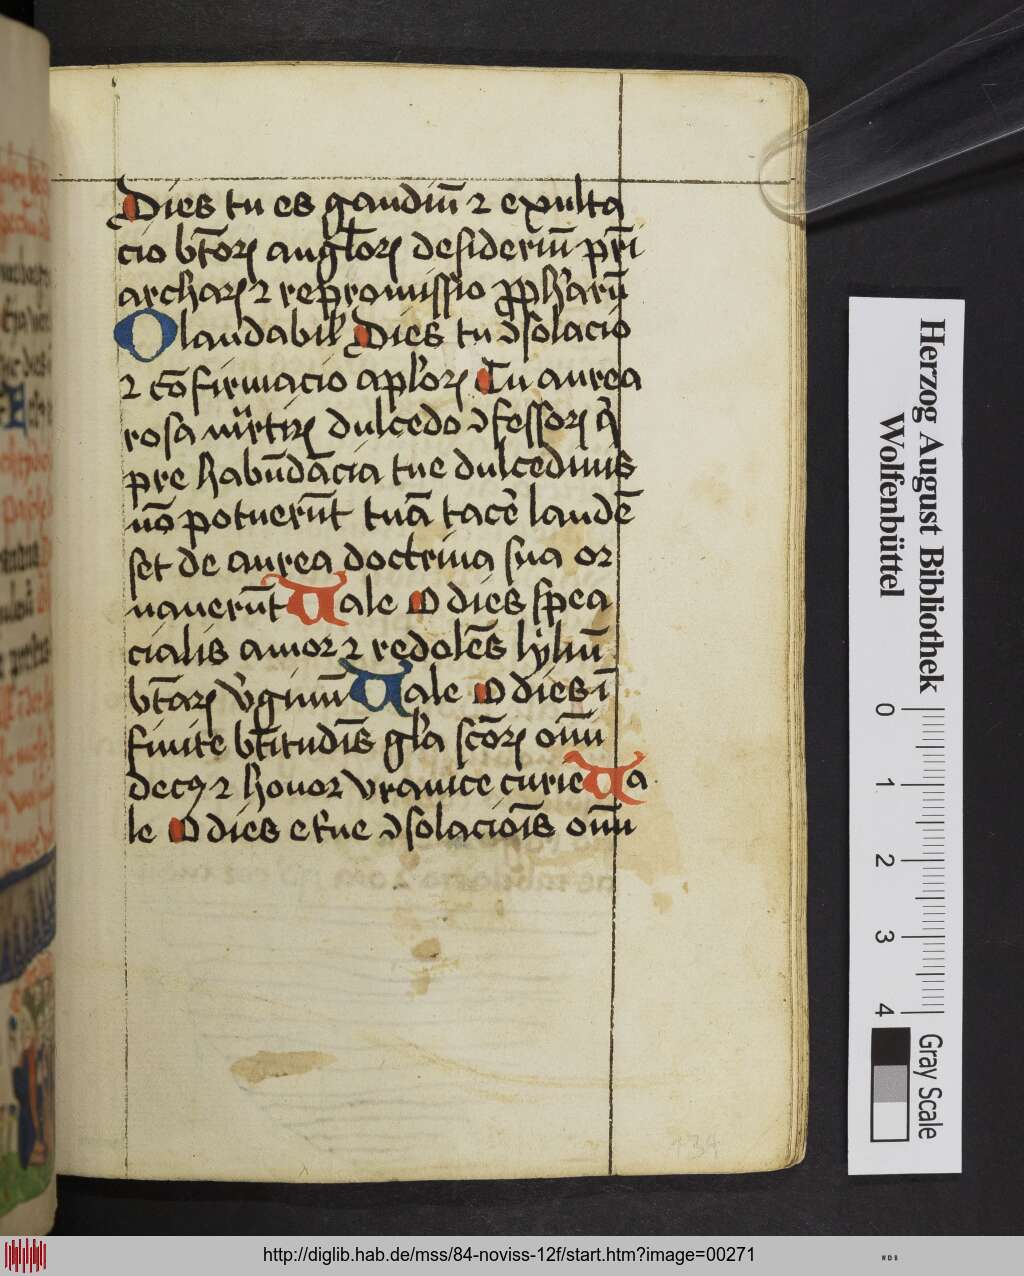 Dies tu es gaudiū ⁊ exulta
cio btōꝝ angl̄oꝝ desideriū pr̄i
archaꝝ ⁊ repromissio ꝓph̄arū
O laudabil̓ Dies tu ꝯsolacio
⁊ cōfirmacio apl̓oꝝ Tu aurea
rosa mr̄tiꝝ dulcedo ꝯfessoꝝ q̇
pre habūdācia tue dulcedinis
nō potuerūt tuā tacē laudē
set de aurea doctrina sua or
nauerūt Vale O dies spea
cialis amor ⁊ redolēs lyliū
btāꝝ v̓ginum Vale O dies ī
finite btītudīs gl̓a sctōꝝ oīm
decꝯ ⁊ honor vranice curie Va
le O dies et̓ne ꝯsolacioīs oīm
434
Herzog August Bibliothek
Wolfenbüttel
0 1 2 3 4
Gray Scale
http://diglib.hab.de/mss/84-noviss-12f/start.htm?image=00271